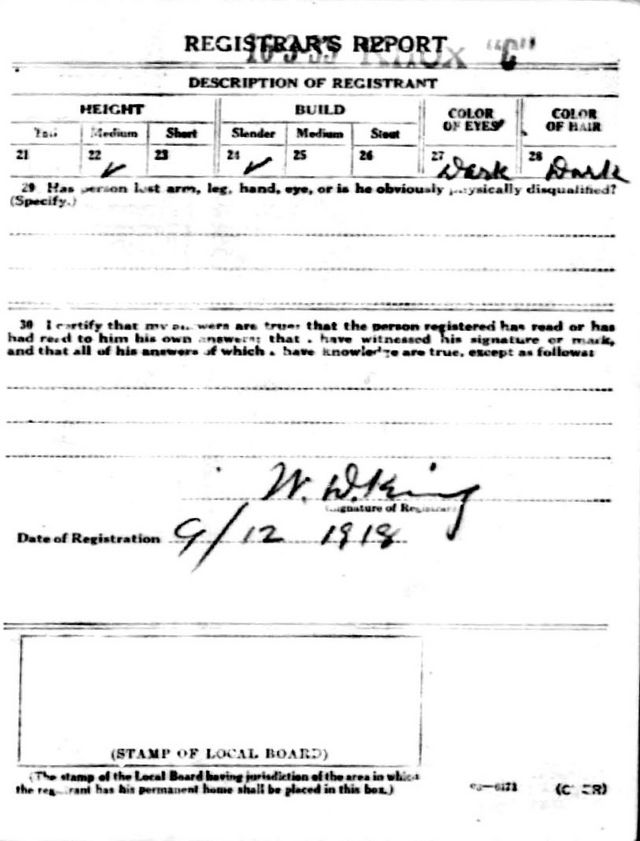 REGISTRAR'S REPORT
10-3-35 Knox "C"
DESCRIPTION OF REGISTRANT
HEIGHT BUILD COLOR OF EYES COLOR OF HAIR
Tall Medium Short Slender Medium Stout
21 22 ✓ 23 24 ✓ 25 26 27 Dark 28 Dark
29 Has person lost arm, leg, hand, eye, or is he obviously physically disqualified?
(Specify.)
30 I certify that my answers are true; that the person registered has read or has
had read to him his own answers; that I have witnessed his signature or mark,
and that all of his answers of which I have knowledge are true, except as follows:
W. D. King
(Signature of Registrar)
Date of Registration 9/12 1918
(STAMP OF LOCAL BOARD)
(The stamp of the Local Board having jurisdiction of the area in which
the registrant has his permanent home shall be placed in this box.)
03—6171 (OVER)